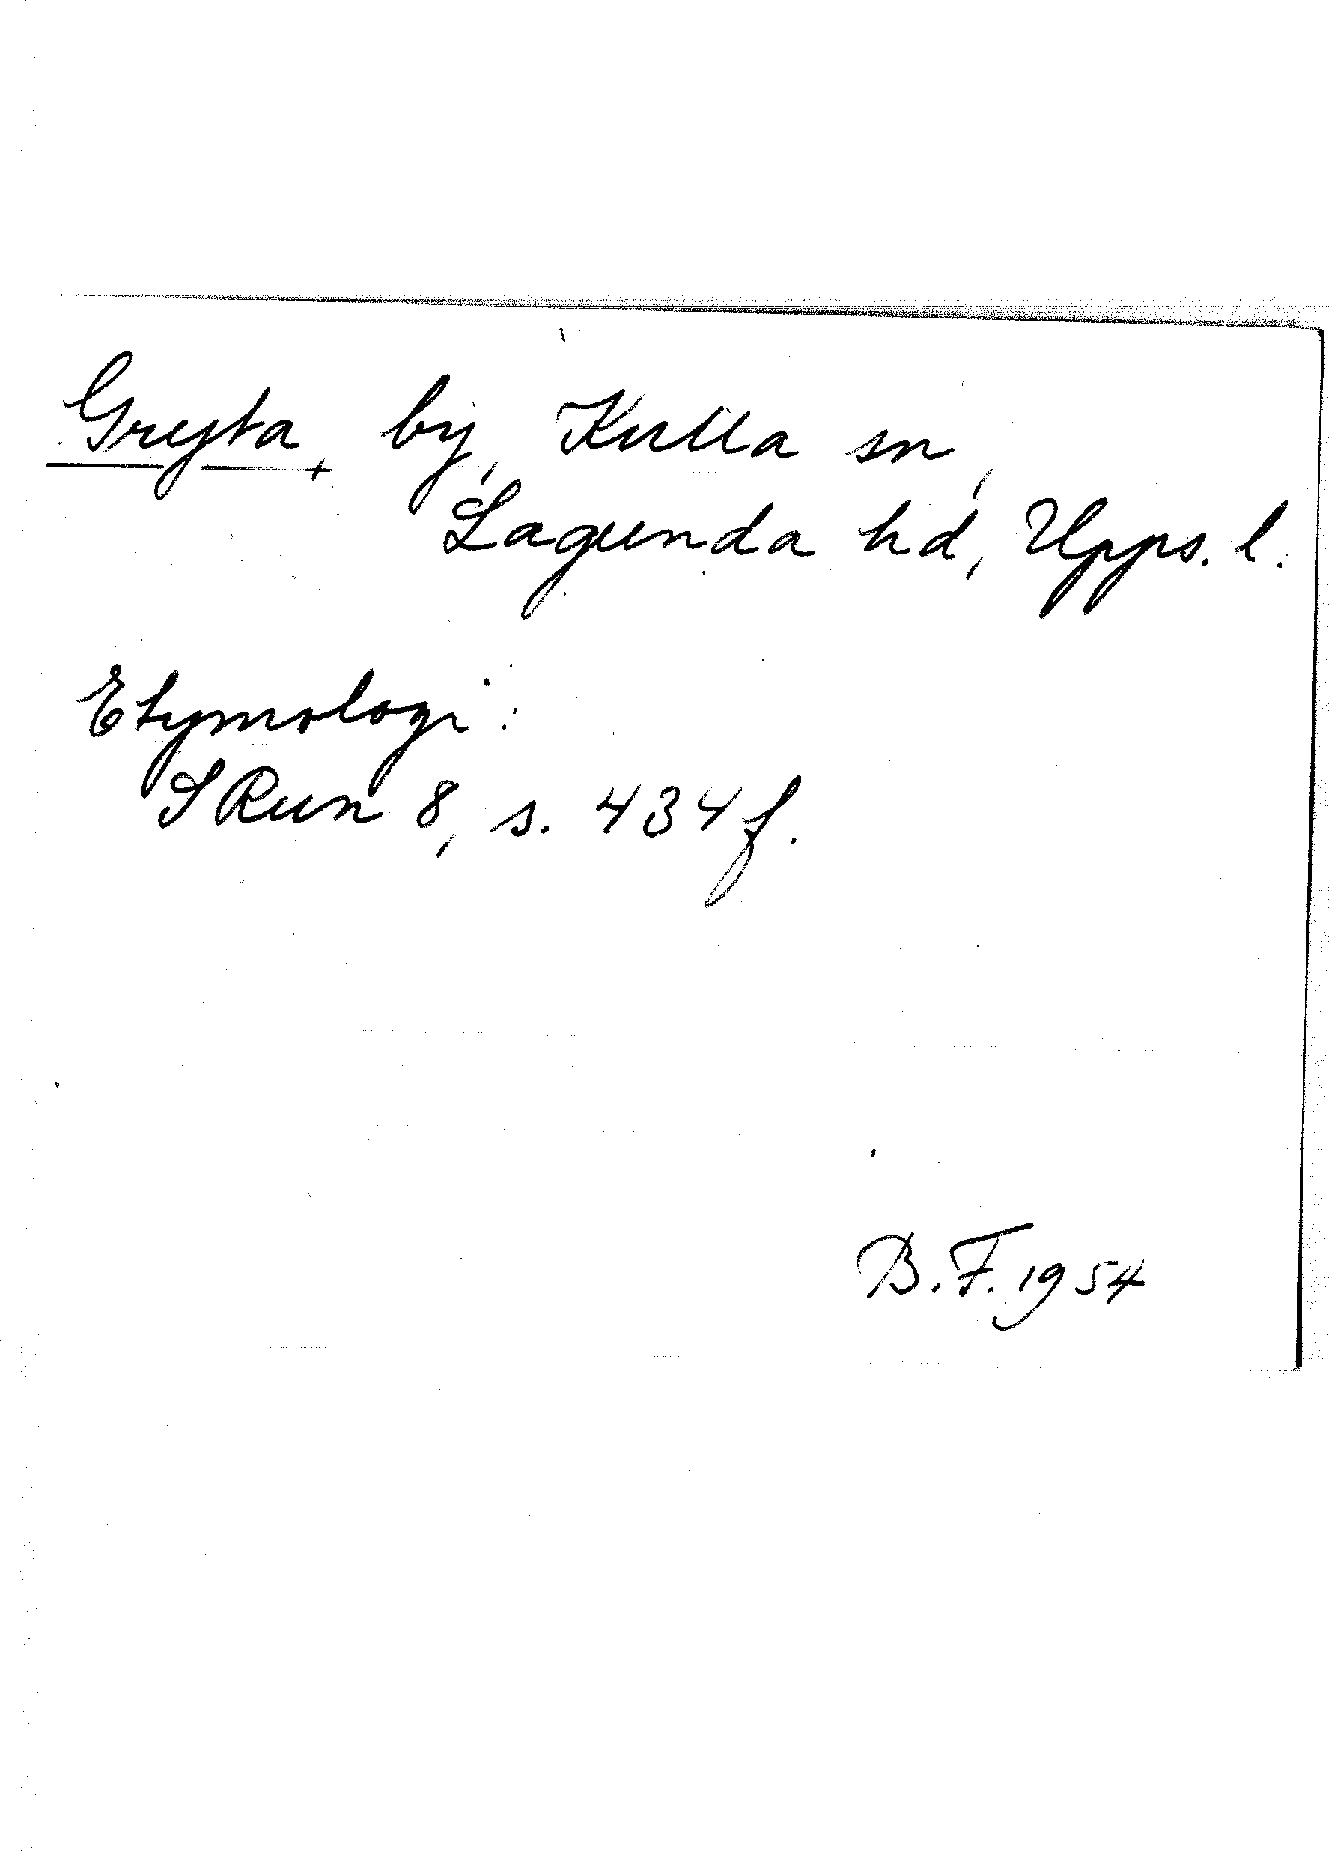 Gryta, by, Kulla sn,
Lagunda hd, Upps. l.
Etymologi:
SRun 8, s. 434 f.
B.F. 1954